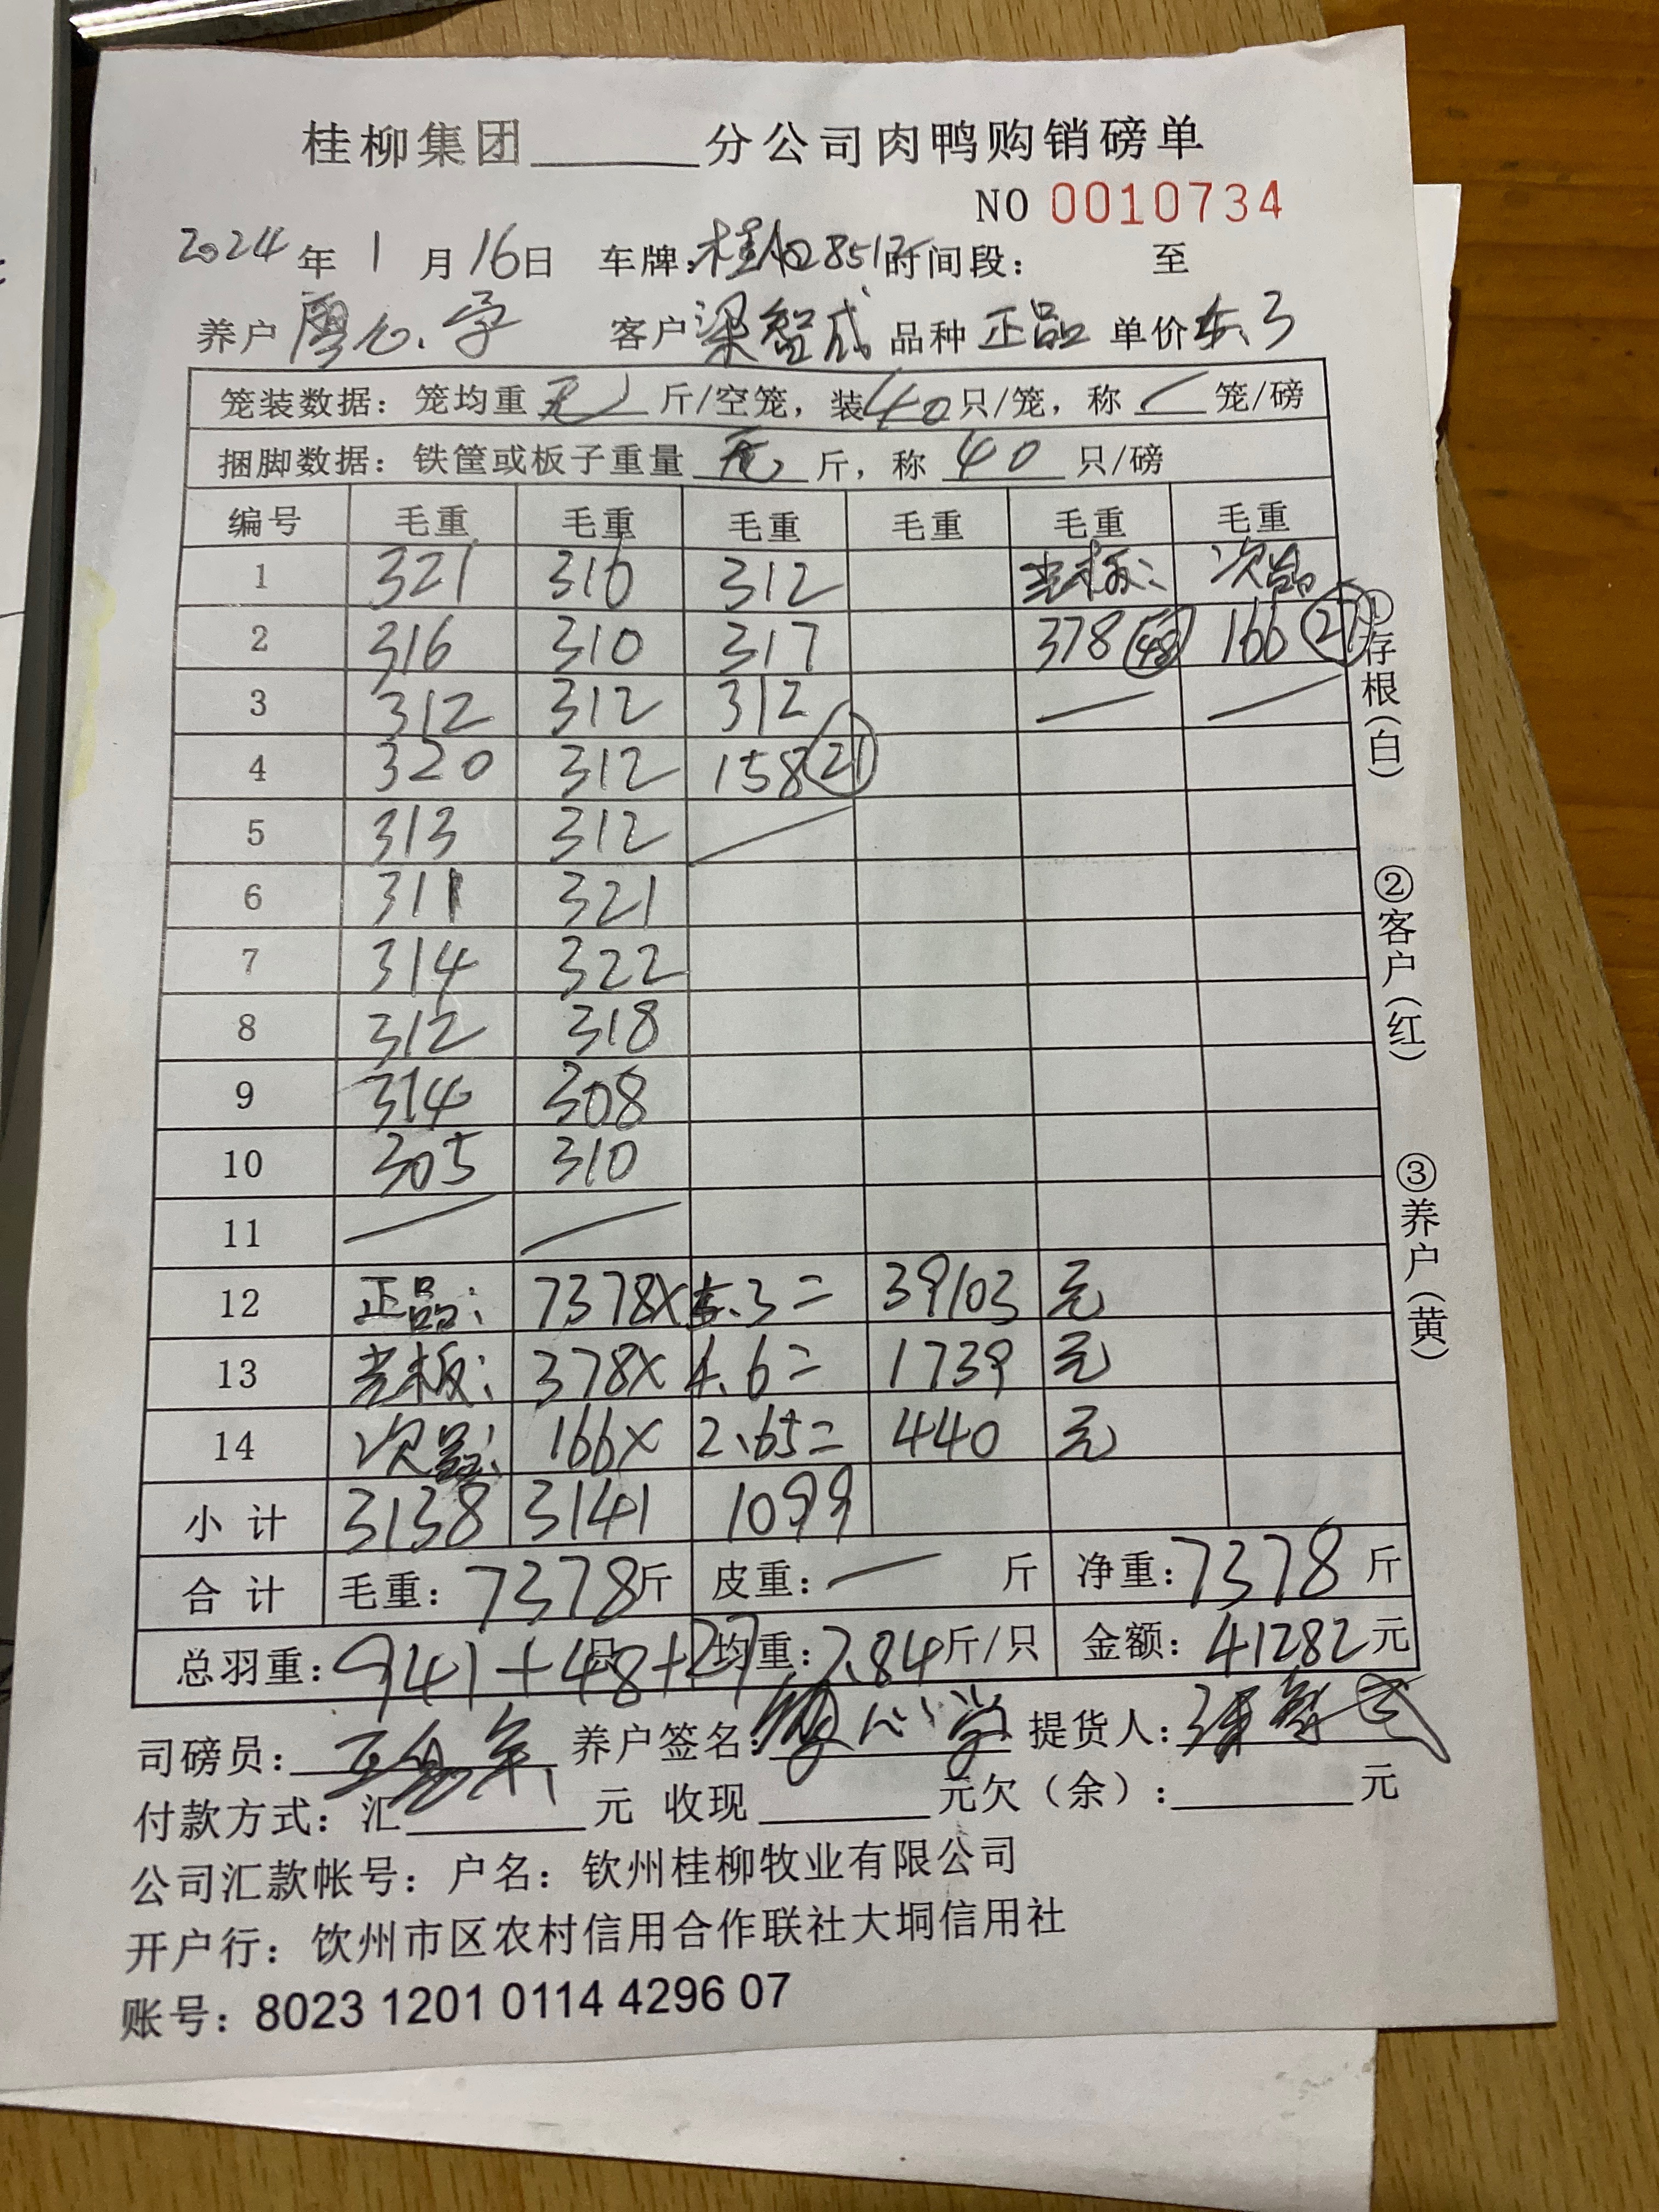 桂柳集团______分公司肉鸭购销磅单
NO 0010734
2024年 1月16日 车牌: 时间段: 至
养户 廖心学 客户 梁智成 品种 正品 单价 5.3
笼装数据: 笼均重 无 斤/空笼, 装 40 只/笼, 称 / 笼/磅
捆脚数据: 铁筐或板子重量 无 斤, 称 40 只/磅
编号 毛重 毛重 毛重 毛重 毛重 毛重
1 321 316 312 光板: 次品
2 316 310 317 378 48 166 27
3 312 312 312
4 320 312 158 21
5 313 312
6 311 321
7 314 322
8 312 318
9 314 308
10 305 310
11
12 正品: 7378× 5.3= 39103 元
13 光板: 378× 4.6= 1739 元
14 次品: 166× 2.65= 440 元
小计 3138 3141 1099
合计 毛重: 7378斤 皮重: — 斤 净重: 7378 斤
总羽重: 941+48+27 均重: 7.84斤/只 金额: 41282元
司磅员: 养户签名: 廖心学 提货人: 梁智成
付款方式: 汇______元 收现______元欠(余):______元
公司汇款帐号: 户名: 钦州桂柳牧业有限公司
开户行: 饮州市区农村信用合作联社大垌信用社
账号: 8023 1201 0114 4296 07
①存根(白)
②客户(红)
③养户(黄)